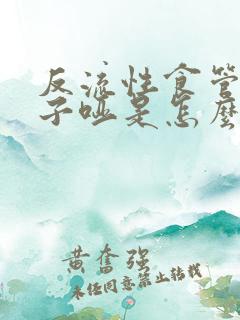 反流性食管
子哑是怎么
黄奋强
未经同意禁止转载